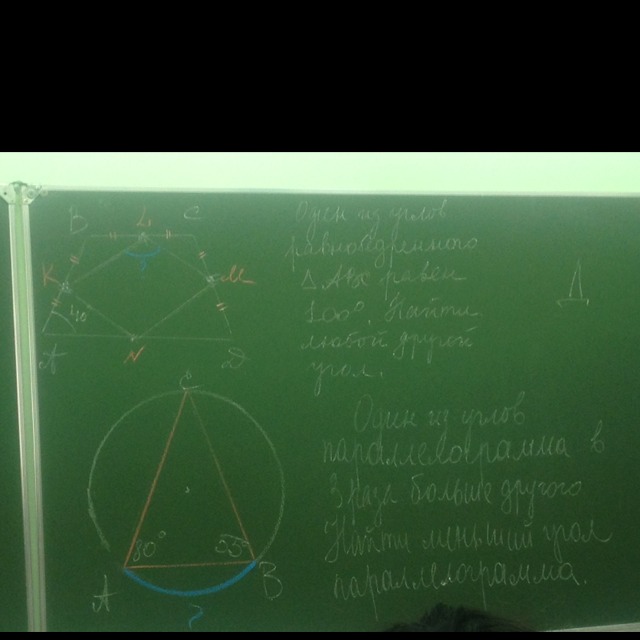 B L C
K M
40°
A N D
?
Один из углов
равнобедренного
Δ ABC равен
100°. Найти
любой другой
угол.
Д
C
80° 55°
A B
?
Один из углов
параллелограмма в
3 раза больше другого
Найти меньший угол
параллелограмма.